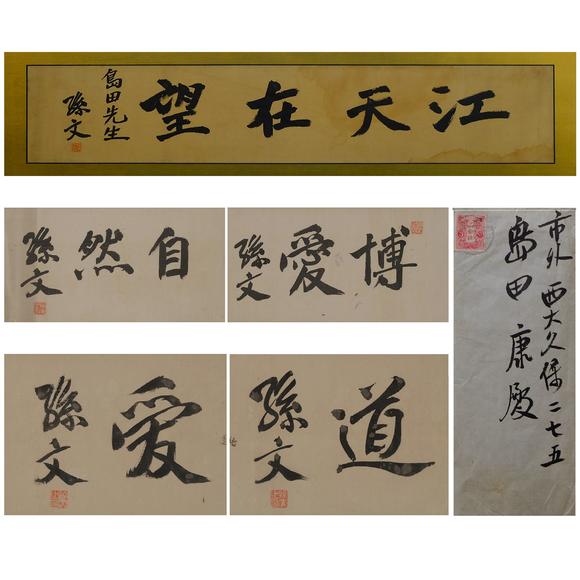 江天在望
島田先生
孫文
自然
孫文
博愛
孫文
市外 西大久保二七五
島田 康殿
愛
孫文
道
孫文